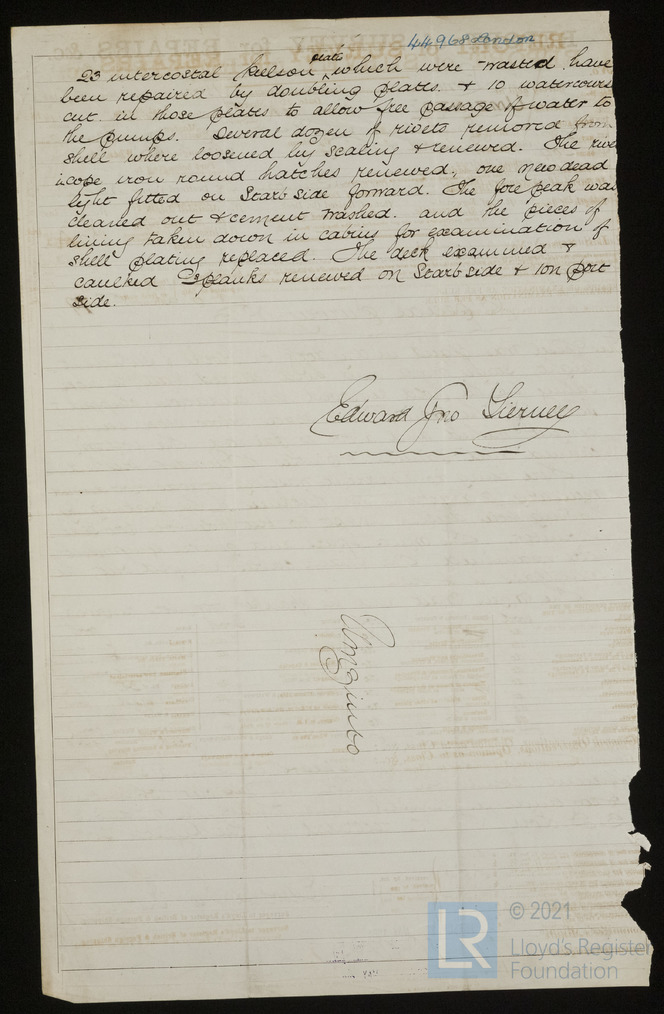 44968 London
23 intercostal keelson plates which were wasted have
been repaired by doubling plates. & 10 watercourses
cut in those plates to allow free passage of water to
the pumps. Several dozen of rivets removed from
shell where loosened by scaling & renewed. The
iron round hatches renewed, one new dead
light fitted on Starb side forward. The fore peak was
cleaned out & cement washed. and the pieces of
lining taken down in cabins for examination of
shell plating replaced. The deck examined &
caulked planks renewed on Starb side & 1 on port
side.
Edward Jno Tierney
Umzimbo
LR
© 2021
Lloyd's Register
Foundation